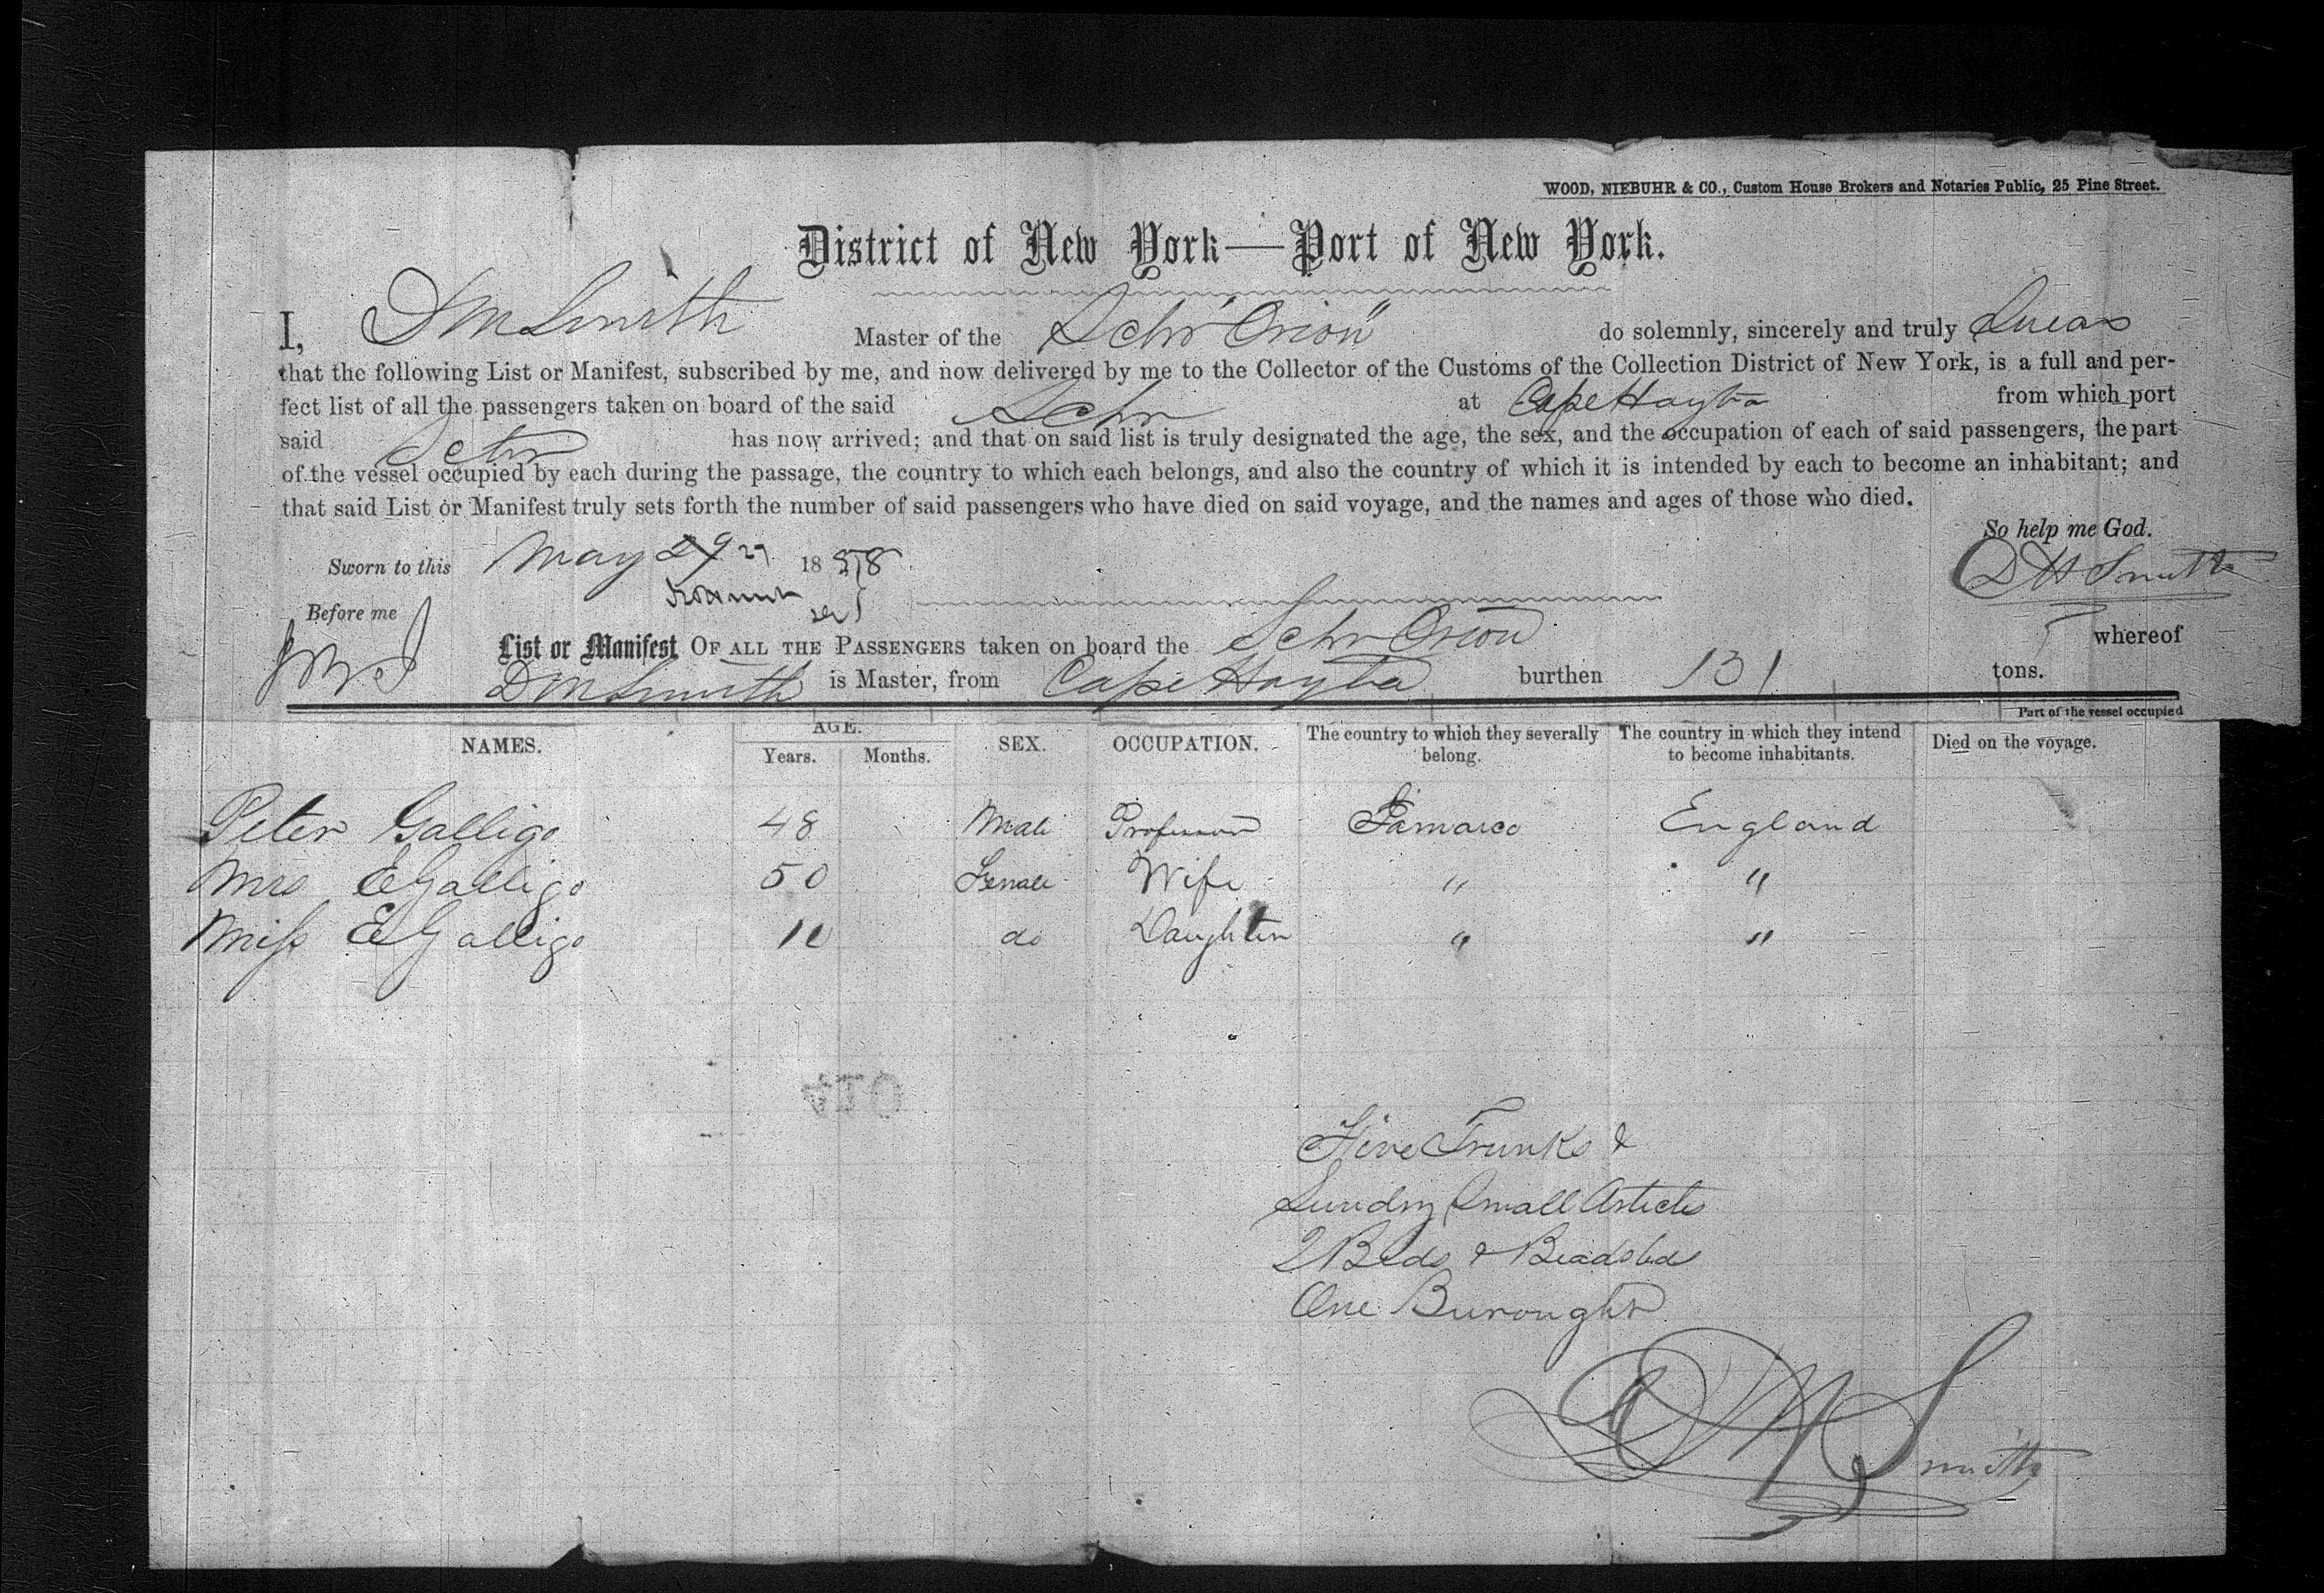 WOOD, NIEBUHR & CO., Custom House Brokers and Notaries Public, 25 Pine Street.
District of New York—Port of New York.
I, D M Smith Master of the Schr "Orion" do solemnly, sincerely and truly Swear
that the following List or Manifest, subscribed by me, and now delivered by me to the Collector of the Customs of the Collection District of New York, is a full and per-
fect list of all the passengers taken on board of the said Schr at Cape Hayta from which port
said Schr has now arrived; and that on said list is truly designated the age, the sex, and the occupation of each of said passengers, the part
of the vessel occupied by each during the passage, the country to which each belongs, and also the country of which it is intended by each to become an inhabitant; and
that said List or Manifest truly sets forth the number of said passengers who have died on said voyage, and the names and ages of those who died.
So help me God.
Sworn to this May 29 29 1858
D M Smith
Before me
List or Manifest OF ALL THE PASSENGERS taken on board the Schr Orion whereof
D M Smith is Master, from Cape Hayta burthen 131 tons.
Part of the vessel occupied
NAMES. AGE. Years. Months. SEX. OCCUPATION. The country to which they severally belong. The country in which they intend to become inhabitants. Died on the voyage.
Peter Galligo 48 Male Professor Jamaica England
Mrs E Galligo 50 Female Wife " "
Miss E Galligo do Daughter " "
Five Trunks &
Sundry Small Articls
2 Beds & Beadsteds
One Burought
D M Smith